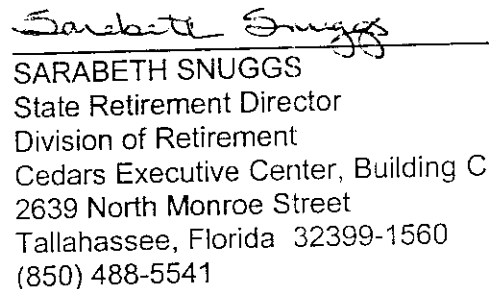 Sarabeth Snuggs
SARABETH SNUGGS
State Retirement Director
Division of Retirement
Cedars Executive Center, Building C
2639 North Monroe Street
Tallahassee, Florida 32399-1560
(850) 488-5541